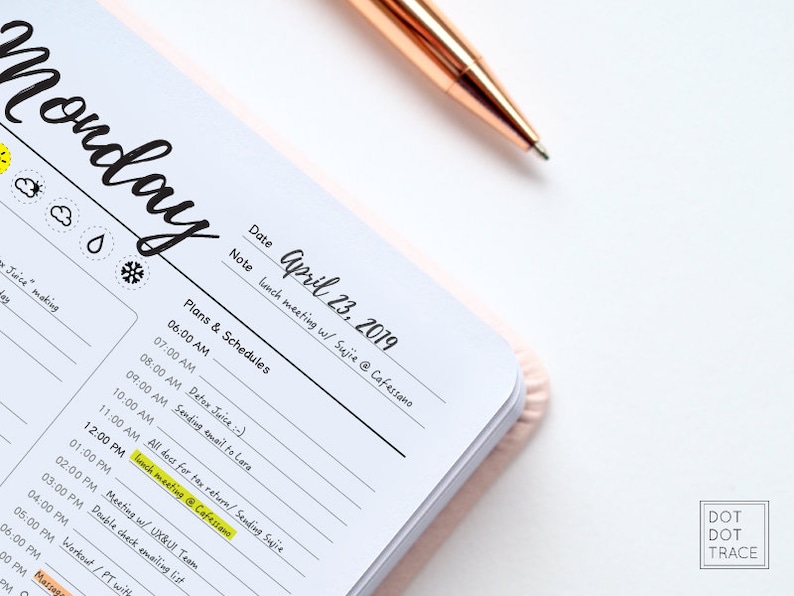 Monday
Date April 23, 2019
Note lunch meeting w/ Sujie @ Cafessano
Juice" making
Plans & Schedules
06:00 AM
07:00 AM
08:00 AM Detox Juice :-)
09:00 AM Sending email to Lara
10:00 AM
11:00 AM All docs for tax return/ Sending Sujie
12:00 PM lunch meeting @ Cafessano
01:00 PM
02:00 PM Meeting w/ UX&UI Team
03:00 PM Double check emailing list
04:00 PM
05:00 PM Workout / PT with
06:00 PM
PM Massage
DOT
DOT
TRACE